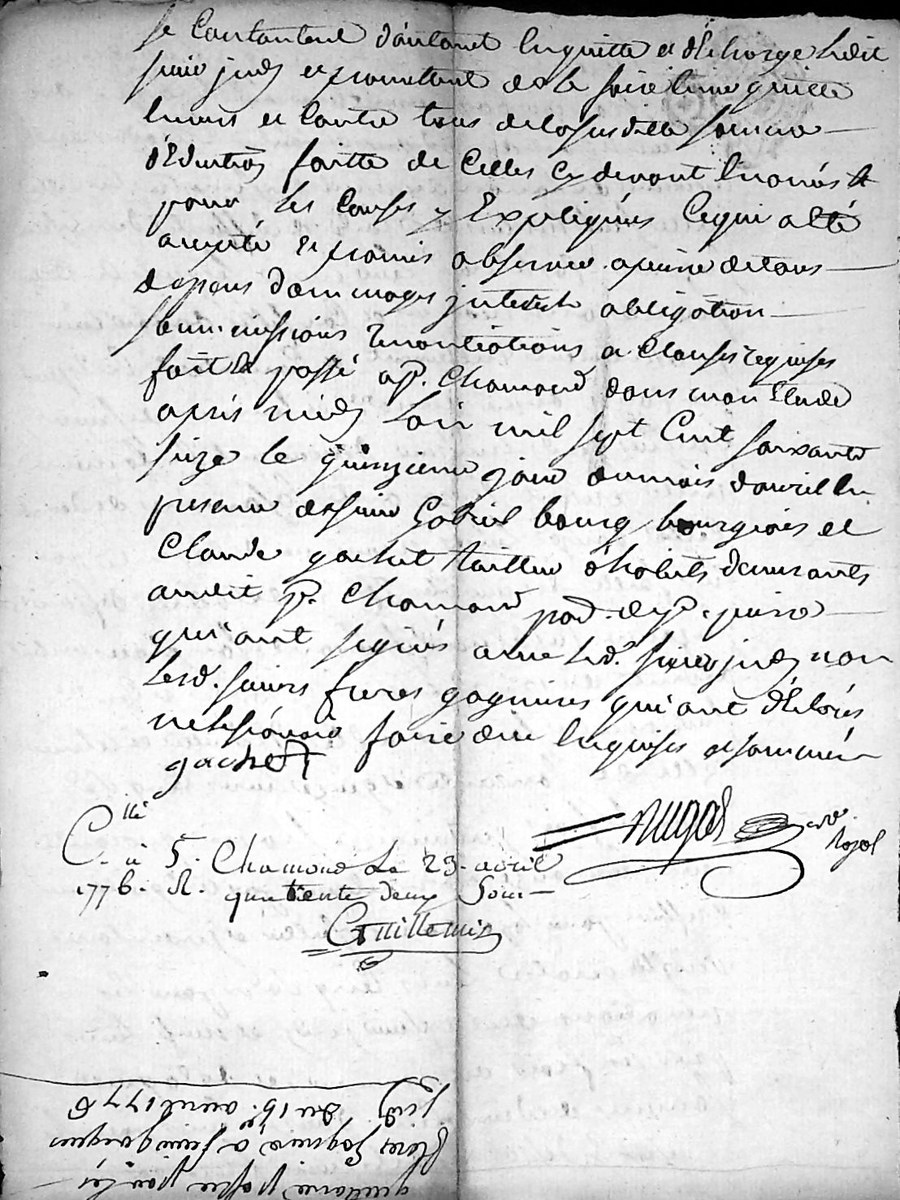 se Contantent d'autant lenquitte et décharge ledit
sieur judy et promettent de le faire tenir quitte
envers et contre tous de la susditte somme
déduction faitte de celles cy devant énoncés &
pour les Causes y Expliquées Ce qui a été
accepté et promis observer a peine de tous
depens dommages interests obligation
soumissions renontiations & Clauses requises
fait & passé a St. Chamond dans mon Etude
apres midy L'an mil sept Cent soixante
seize le quinzieme jour du mois davril En
presence de sieur Gabriel bourg bourgeois et
Claude gachet tailleur d'habits demeurants
audit St. Chamond
qui ont signés avec led. sieur judy non
lesd. sieurs freres gagnieres qui ont déclarés
ne le sçavoir faire de ce Enquises et sommés
gachet
Dugas
nore royal
Cllé à St. Chamond Le 23. avril
1776. R. quatante deux Sous
Guillemin
quittance passée par les
freres gagniere a sieur jacques
judy du 15. avril 1776